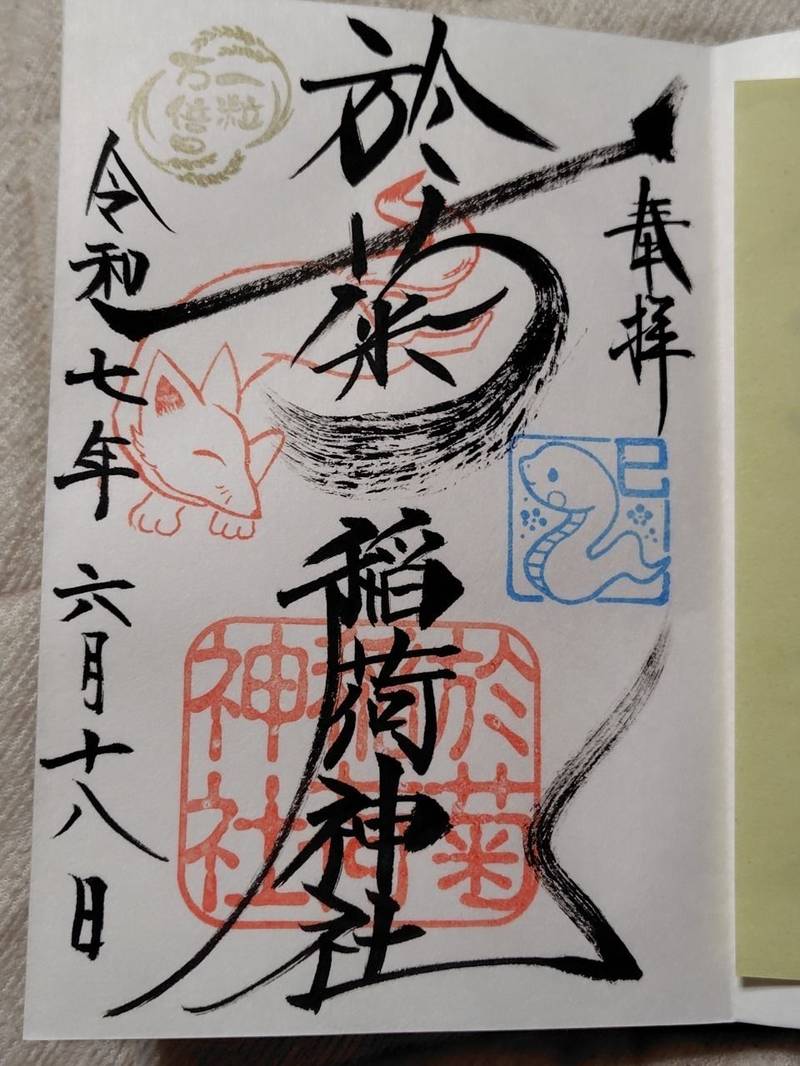 奉拝
巳
於菊稲荷神社
於菊稲荷神社
一粒万倍日
令和七年六月十八日